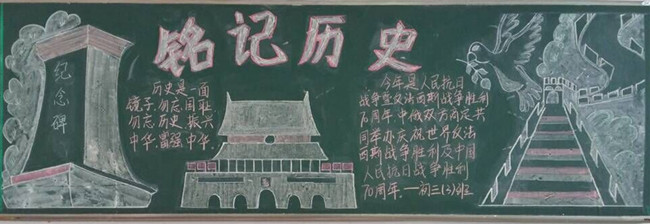 铭记历史
纪念碑
历史是一面
镜子,勿忘国耻
勿忘历史 振兴
中华,富强中华.
今年是人民抗日
战争暨反法西斯战争胜利
70周年,中俄双方商定共
同举办庆祝世界反法
西斯战争胜利及中国
人民抗日战争胜利
70周年.—初三(3)班